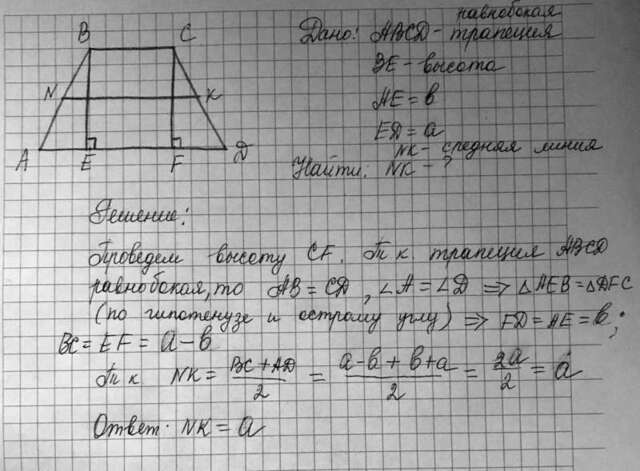 B C
N K
A E F D
Дано: ABCD - равнобокая трапеция
BE - высота
AE = b
ED = a
NK - средняя линия
Найти: NK - ?
Решение:
Проведем высоту CF. Т.к. трапеция ABCD
равнобокая, то AB = CD, ∠A = ∠D ⇒ △AEB = △DFC
(по гипотенузе и острому углу) ⇒ FD = AE = b;
BC = EF = a - b
Т.к NK = \frac{BC + AD}{2} = \frac{a - b + b + a}{2} = \frac{2a}{2} = a
Ответ: NK = a